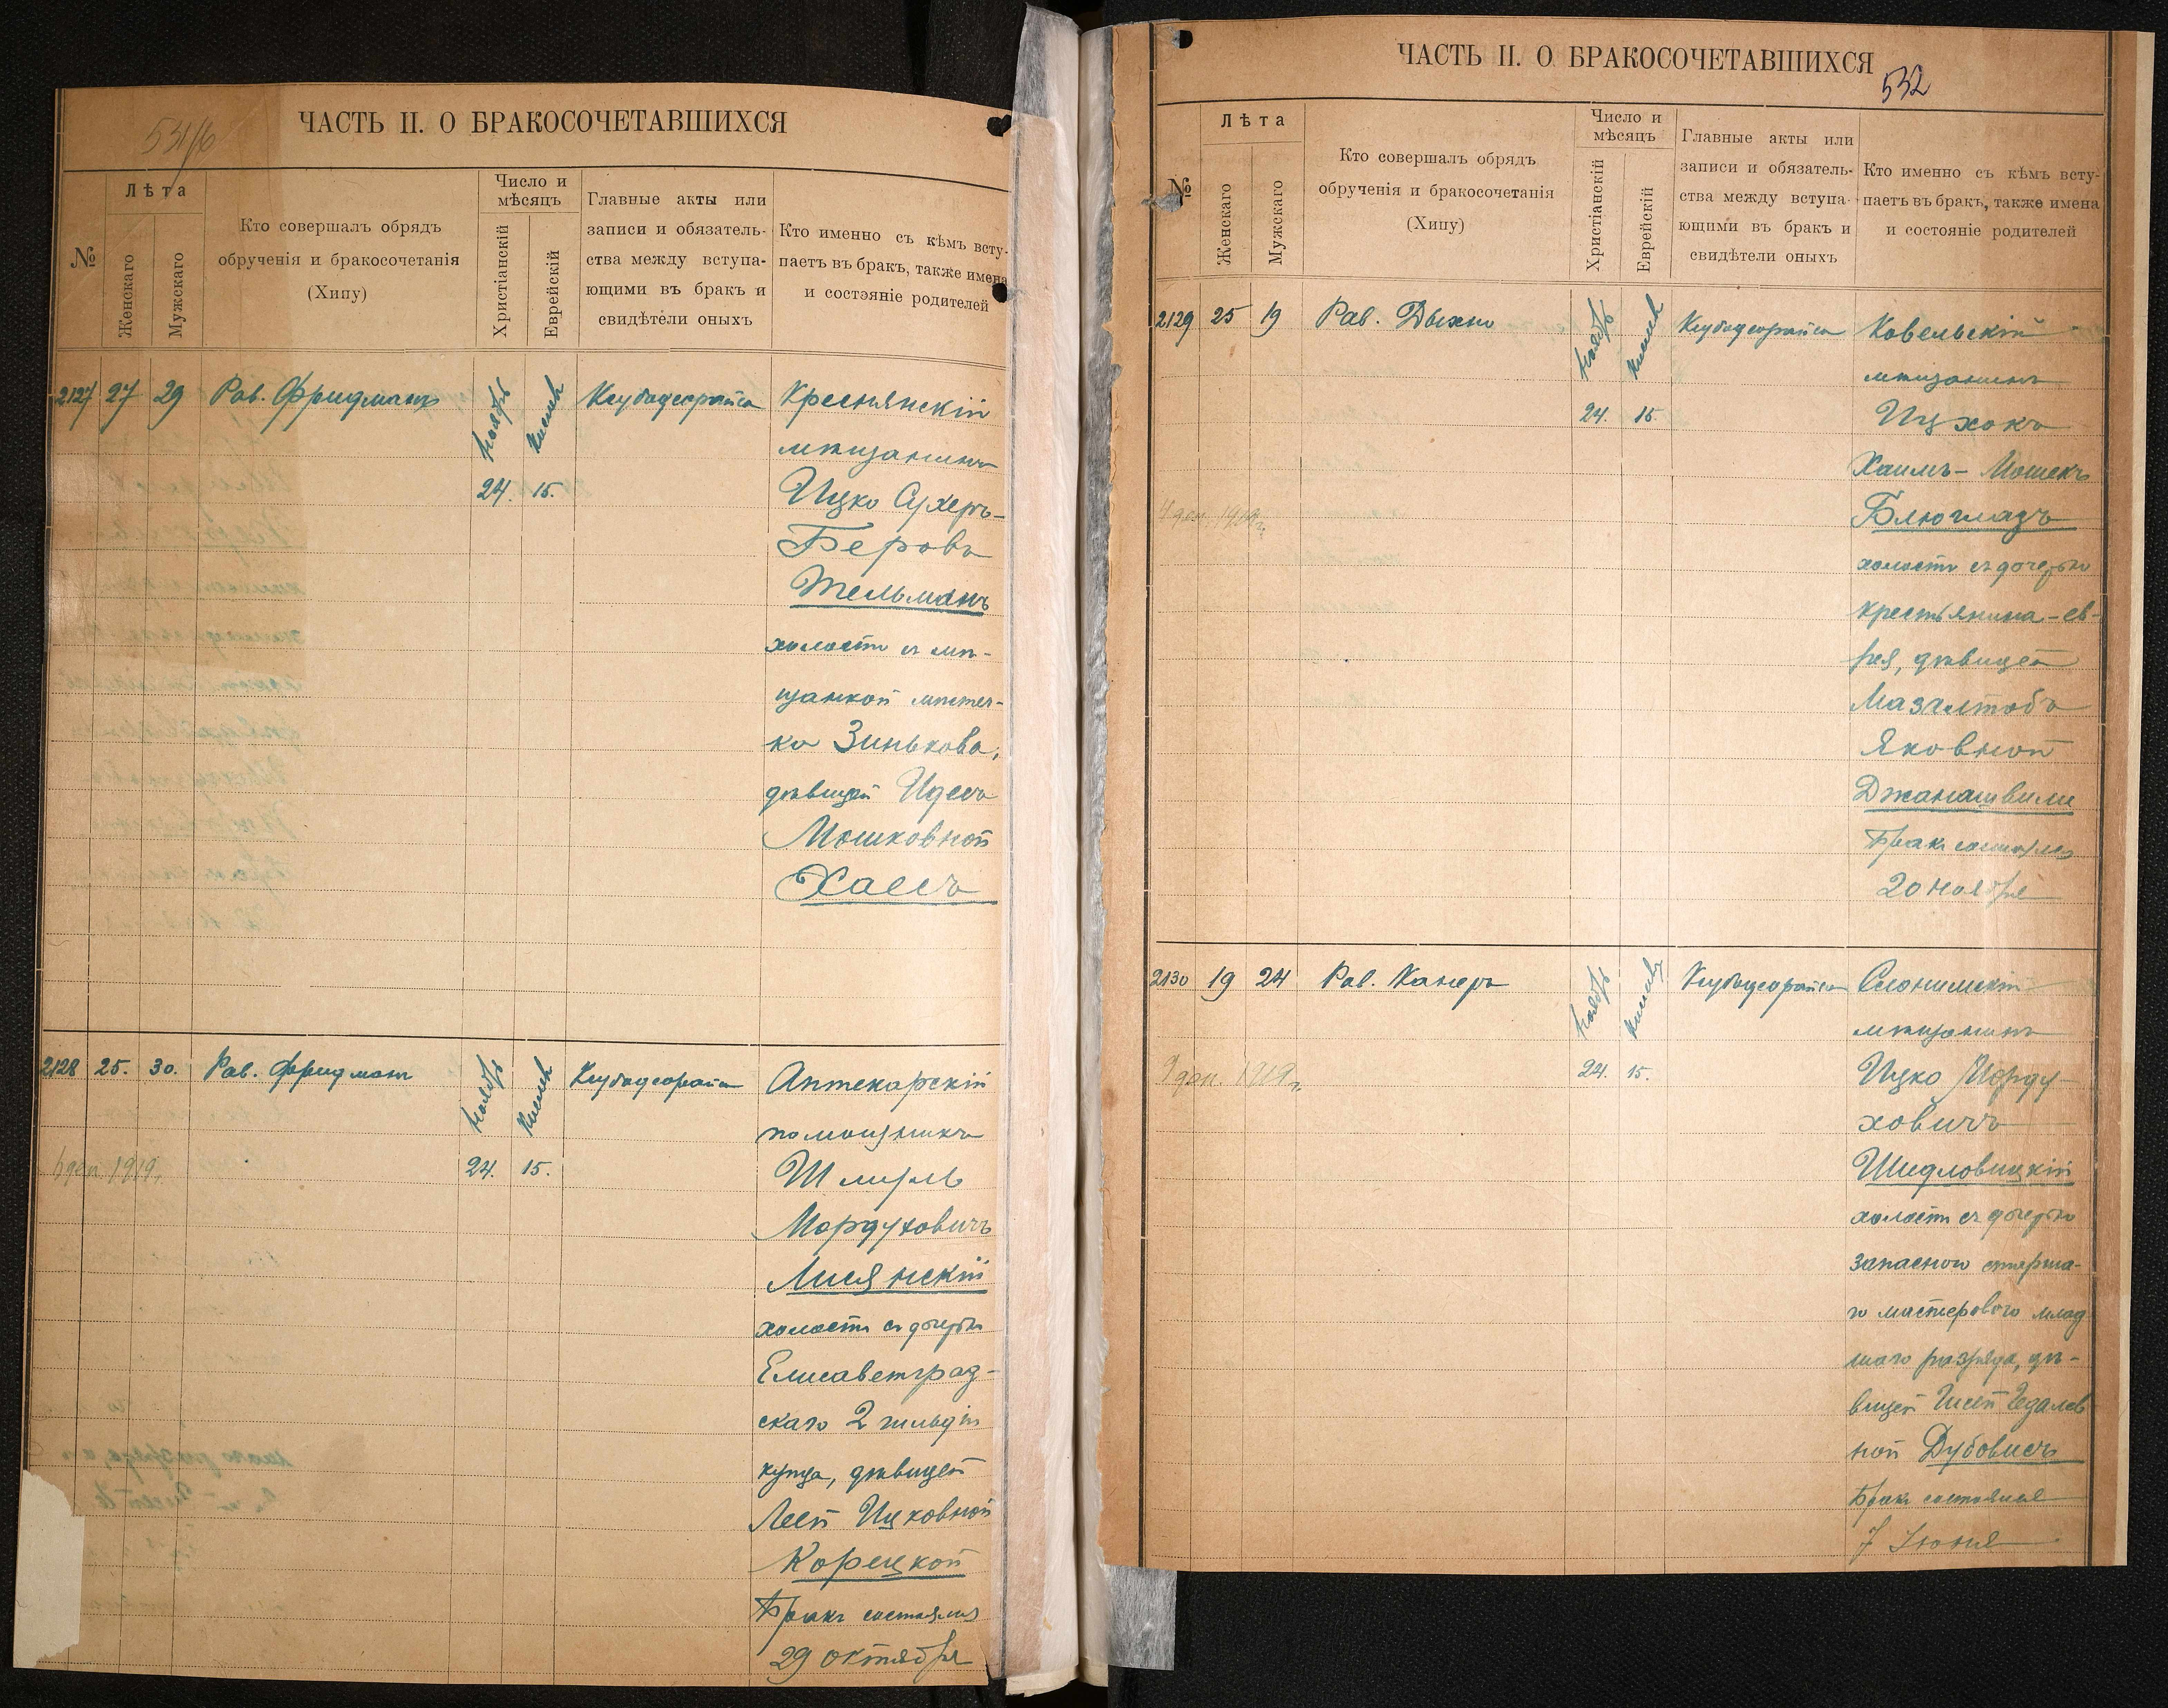 531/б
ЧАСТЬ II. О БРАКОСОЧЕТАВШИХСЯ
№
Лѣта
Женскаго
Мужскаго
Кто совершалъ обрядъ
обрученія и бракосочетанія
(Хипу)
Число и
мѣсяцъ
Христіанскій
Еврейскій
Главные акты или
записи и обязатель-
ства между вступа-
ющими въ бракъ и
свидѣтели оныхъ
Кто именно съ кѣмъ всту-
паетъ въ бракъ, также имена
и состояніе родителей
2127 27 29 Рав. Фридманъ
Ноябрь
24.
Кислев
15.
Ксубадеорайса
мѣщанинъ
Ицко Сухеръ-
Беровъ
Тельманъ
холостъ съ мѣ-
щанкой мѣстеч-
ка Зинькова,
дѣвицей Идесъ
Мошковной
Хаесъ
2128 25. 30. Рав. Фридманъ
Ноябрь
24.
Кислев
15.
Ксубадеорайса
1919.
Аптекарскій
помощникъ
Шмуль
Мордуховичъ
Лисянскій
холостъ съ дочерью
Елисаветград-
скаго 2 гильдіи
купца, дѣвицей
Леей Ицковной
Корецкой
Бракъ состоялся
29 октября
ЧАСТЬ II. О БРАКОСОЧЕТАВШИХСЯ
532
№
Лѣта
Женскаго
Мужскаго
Кто совершалъ обрядъ
обрученія и бракосочетанія
(Хипу)
Число и
мѣсяцъ
Христіанскій
Еврейскій
Главные акты или
записи и обязатель-
ства между вступа-
ющими въ бракъ и
свидѣтели оныхъ
Кто именно съ кѣмъ всту-
паетъ въ бракъ, также имена
и состояніе родителей
2129 25 19 Рав. Дыхно
Ноябрь
24.
Кислев
15.
Ксубадеорайса
4 дек. 1919 г.
Ковельскій
мѣщанинъ
Ицхокъ
Хаимъ-Мошекъ
Блюгладъ
холостъ съ дочерью
крестьянина-ев-
рея, дѣвицей
Мазалтобъ
Яковной
Джанашвили
Бракъ состоялся
20 ноября
2130 19 24 Рав. Канеръ
Ноябрь
24.
Кислев
15.
Ксубадеорайса
9 дек. 1919 г.
Слонимскій
мѣщанинъ
Ицко Морду-
ховичъ
Шидловицкій
холостъ съ дочерью
запасного старша-
го мастерового млад
шаго разряда, дѣ-
вицей Гедалев
ной Дубовисъ
Бракъ состоялся
7 Іюня